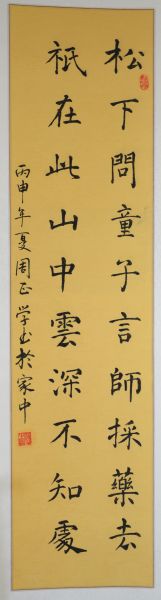 松下問童子言師採藥去
祇在此山中雲深不知處
丙申年夏周正学书於家中